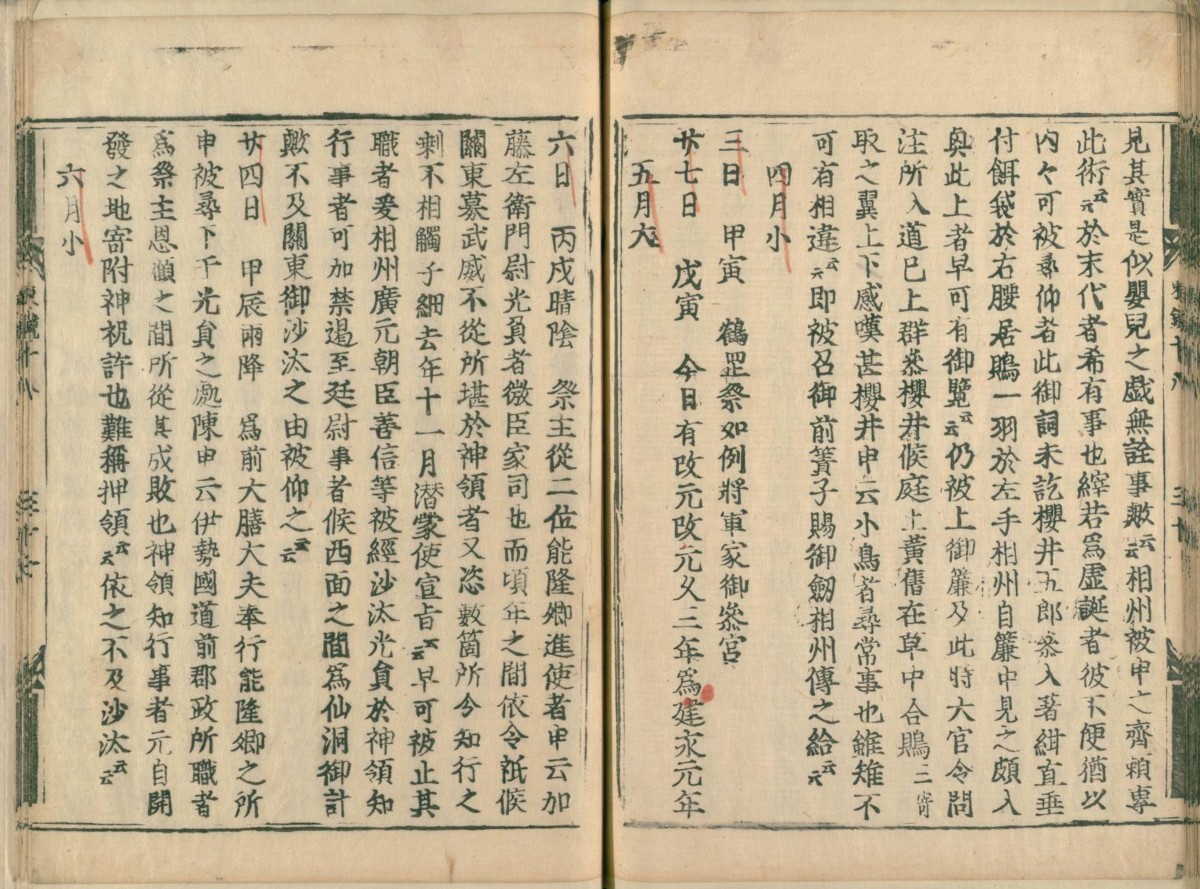 見其實是似嬰兒之戯無詮事歟云云相州被申之齊頼專
此術云云於末代者希有事也縡若爲虚誕者彼不便猶以
内々可被尋仰者此御詞未訖櫻井五郎叅入著紺直垂
付餌袋於右腰居鵙一羽於左手相州自簾中見之頗入
興此上者早可有御覽云云仍被上御簾及此時大官令問
注所入道已上群叅櫻井候庭上黄雀在草中合鵙二寄
取之翼上下感嘆甚櫻井申云小鳥者尋常事也雖雉不
可有相違云云即被召御前簀子賜御劔相州傳之給云云
四月小
三日　甲寅　鶴岳祭如例將軍家御叅宮
廿七日　戊寅　今日有改元改元久三年爲建永元年
五月大
六日　丙戌晴陰　祭主從二位能隆卿進使者申云加
藤左衛門尉光負者微臣家司也而頃年之間依令祇候
關東募武威不從所堪於神領者又恣數箇所令知行之
剩不相觸子細去年十一月潜蒙使宣旨云云早可被止其
職者爰相州廣元朝臣善信等被經沙汰光負於神領知
行事者可加禁遏至廷尉事者候西面之間爲仙洞御計
歟不及關東御沙汰之由被仰之云云
廿四日　甲辰雨降　爲前大膳大夫奉行能隆卿之所
申被尋下于光負之處陳申云伊勢國道前郡政所職者
爲祭主恩顧之間所從其成敗也神領知行事者元自開
發之地寄附神祝許也難稱押領云云依之不及沙汰云云
六月小